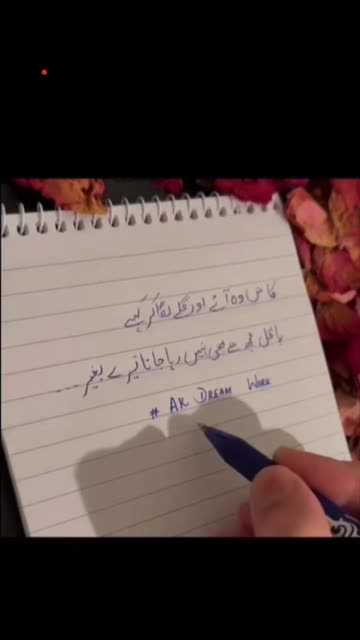 کاش وہ آئے اور گلے لگا کر کہے
پاگل مجھ سے بھی نہیں رہا جاتا تیرے بغیر ....
# AK DREAM WORK